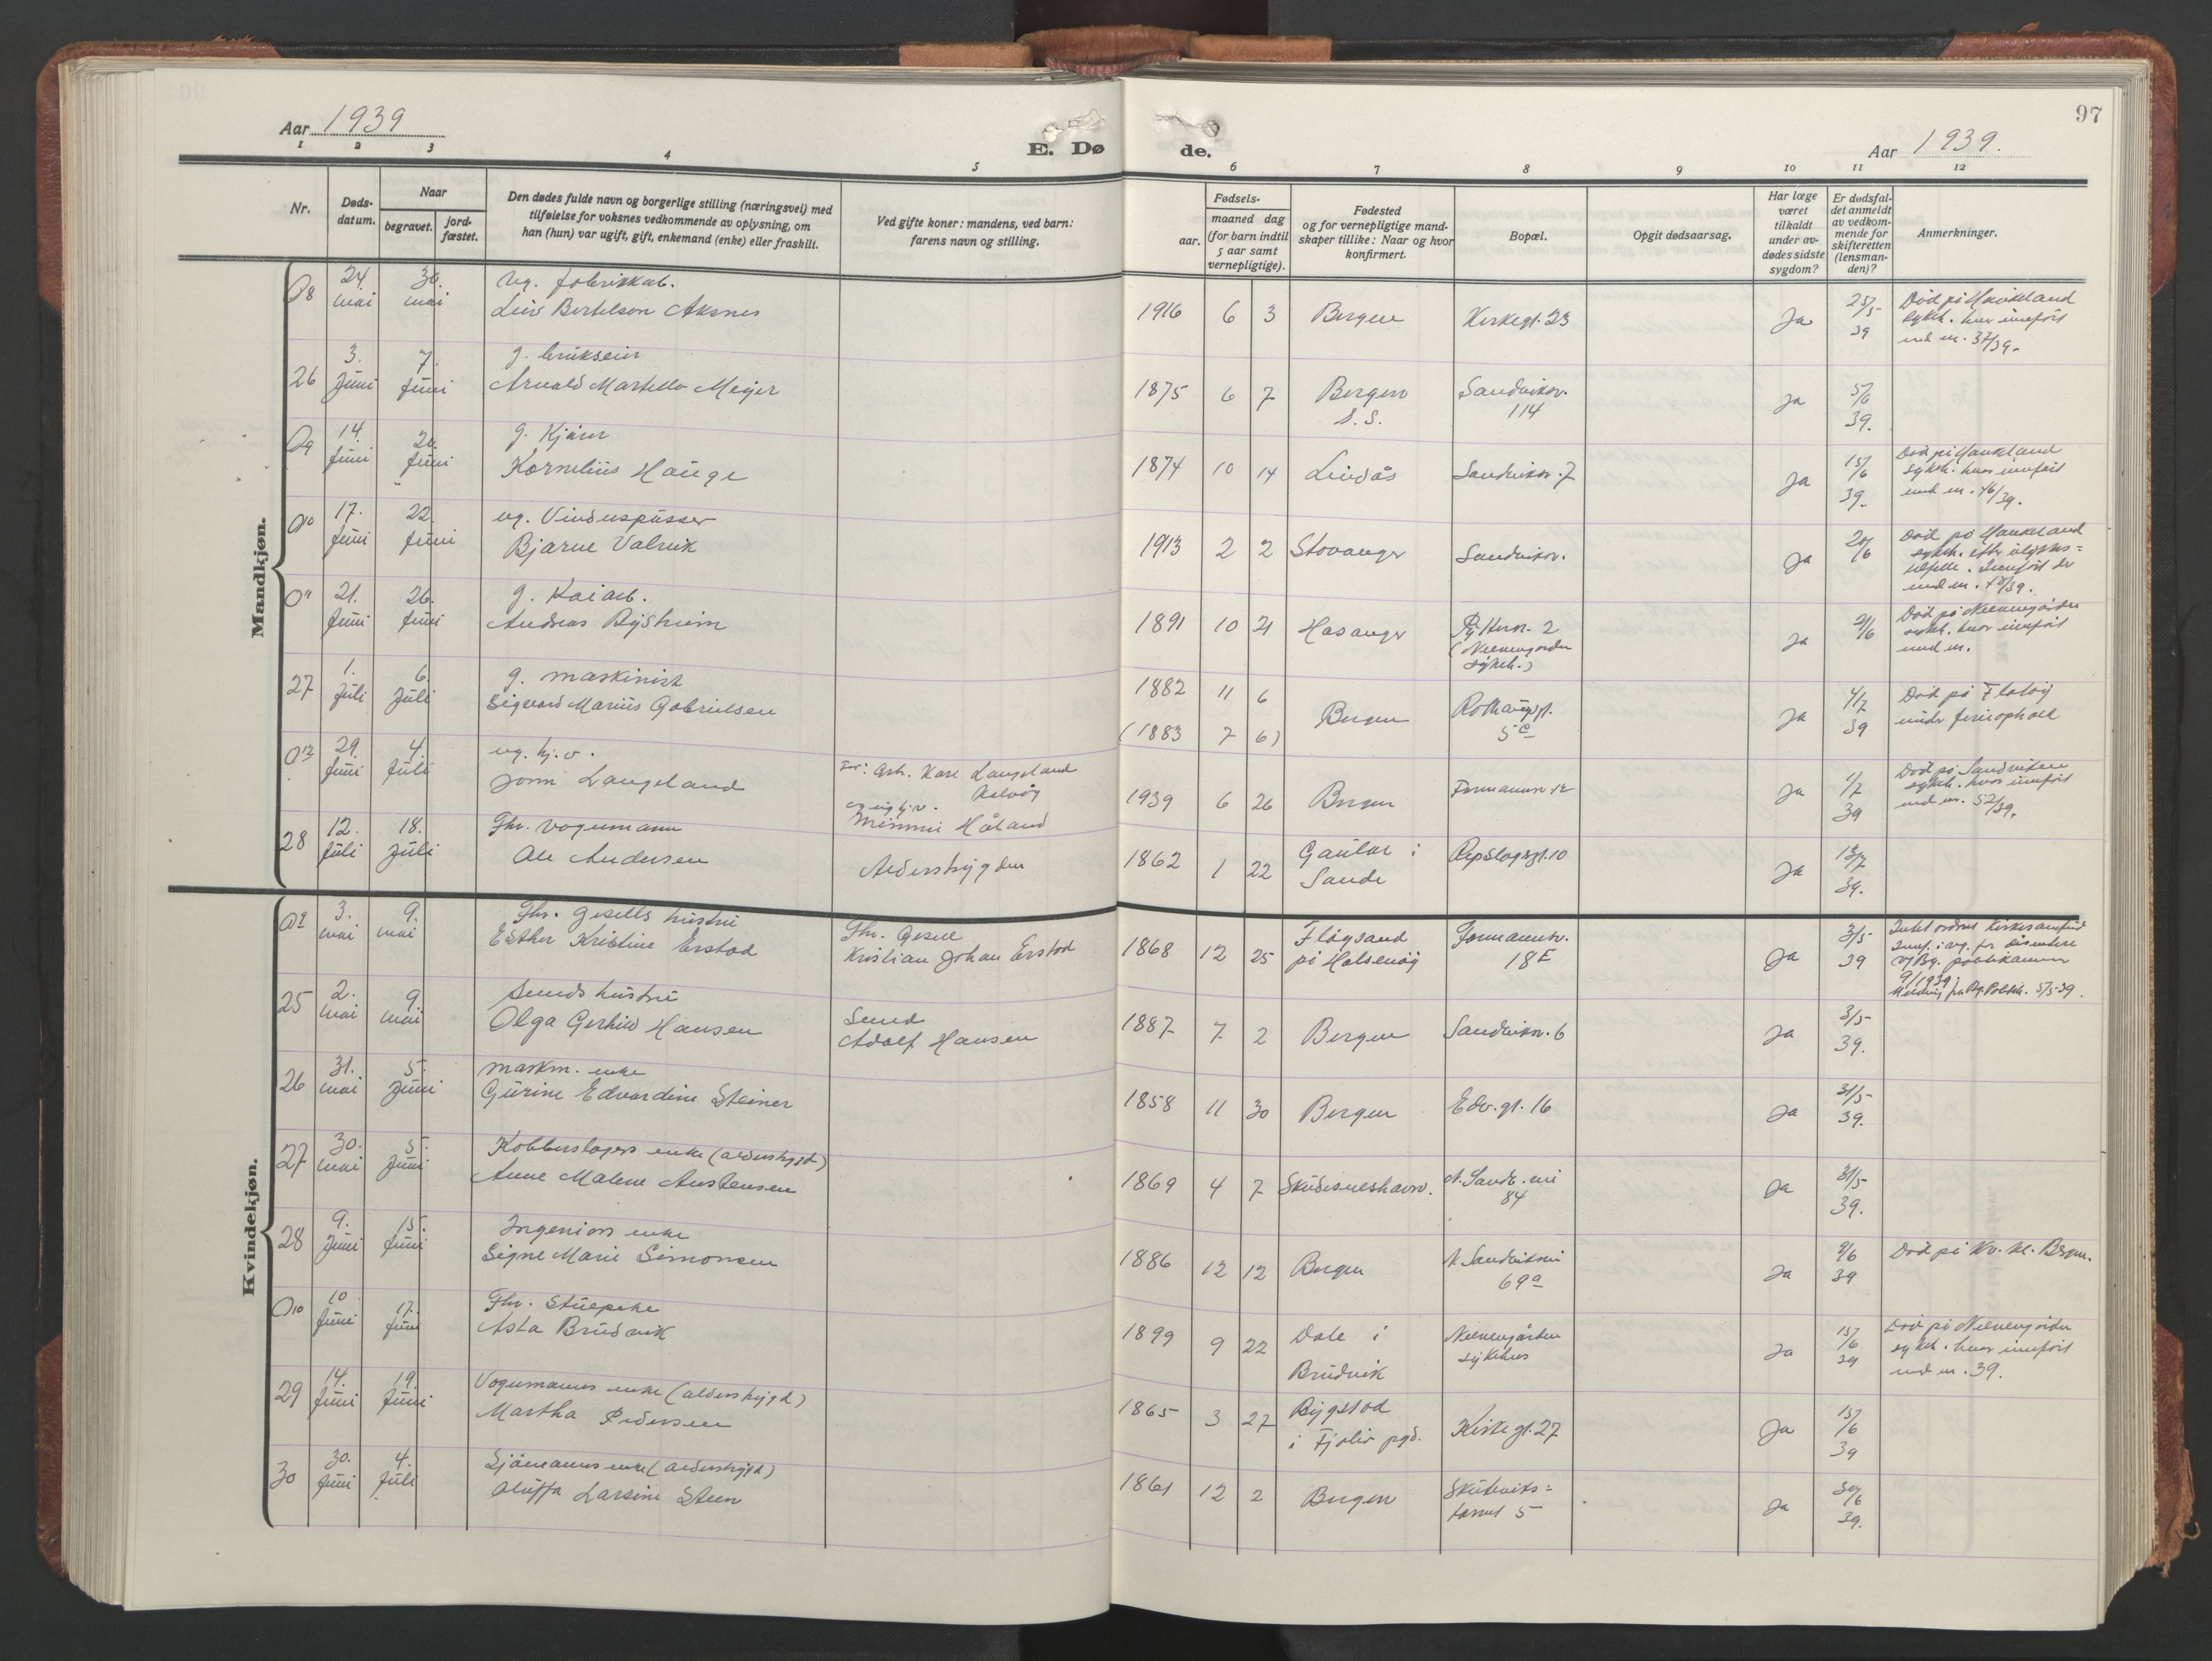 97
Aar 1939
E. Dø
de.
Aar 1939.
1 2 3 4 5 6 7 8 9 10 11 12
Nr.
Døds-
datum.
Naar
begravet.
jord-
fæstet.
Den dødes fulde navn og borgerlige stilling (næringsvei) med
tilføielse for voksnes vedkommende av oplysning, om
han (hun) var ugift, gift, enkemand (enke) eller fraskilt.
Ved gifte koner: mandens, ved barn:
farens navn og stilling.
Fødsels-
aar.
maaned dag
(for barn indtil
5 aar samt
vernepligtige).
Fødested
og for vernepligtige mand-
skaper tillike: Naar og hvor
konfirmert.
Bopæl.
Opgit dødsaarsag.
Har læge
været
tilkaldt
under av-
dødes sidste
sygdom?
Er dødsfal-
det anmeldt
av vedkom-
mende for
skifteretten
(lensman-
den)?
Anmerkninger.
Mandkjøn.
08 24. mai 30. mai ug. fabrikkarb.
Leiv Bertelsen Aksnes 1916 6 3 Bergen Kirkegt. 23 Ja 25/5 39 Död på Haukeland
sykeh. hvor innfört
med nr. 37/39.
26 3. Juni 7. Juni g.
Arnold Martello Meyer 1875 6 7 Bergen
S. S. Sandviksv.
114 Ja 5/6 39.
09 14. Juni 20. Juni g. Kjører
Kornelius Hauge 1874 10 14 Lindås Sandviksv. 7 Ja 15/6 39. Död på Haukeland
sykeh. hvor innfört
med nr. 46/39.
010 17. Juni 22. Juni ug. Vinduspusser
Bjarne Valvik 1913 2 2 Stavanger Sandviksv. Ja 20/6 Död på Haukeland
sykeh. efter ulykkes=
tilfelle. Innfört der
med nr. 48/39.
011 21. Juni 26. Juni g. Kaiarb.
Andreas Bysheim 1891 10 21 Hosanger
2
(Neevengården
sykeh.) Ja 21/6 Död på Neevengården
sykeh. hvor innfört
med nr.
27 1. Juli 6. Juli g. maskinist
Sigvard Marius Gabrielsen 1882 11 6
(1883 7 6) Bergen Rothaugsgt.
5c Ja 4/7 39 Död på Flatöy
under ferieophold
012 29. Juni 4. Juli ug. hj.v.
Jonn Langeland Far: Arb. Kåre Langeland
Askøy
og ug. hj.v.
Minnie Håland 1939 6 26 Bergen Formannsv. 12 Ja 1/7 39 Död på Sandviken
sykeh. hvor innfört
med nr. 52/39.
28 12. Juli 18. Juli Fhv. vognmann
Ole Andersen Alderstrygden 1862 1 22 Gaular i
Sande Repslagergt. 10 Ja 13/7 39.
Kvindekjøn.
02 3. mai 9. mai Fhv. gesells hustru
Esther Kristine Erstad Fhv. Gesell
Kristian Johan Erstad 1868 12 25 Fløysand
på Halsenöy Formannsv.
18E Ja 3/5 39 Intet ordnet kirkesamfund
Innf. i reg. for dissentere
v/Bg. politikammer
9/1939
Melding fra Bg. Politik. 5/5 39.
25 2. mai 9. mai Smeds hustru
Olga Gerhild Hansen Smed
Adolf Hansen 1887 7 2 Bergen Sandviksv. 6 Ja 3/5 39.
26 31. mai 5. Juni maskm. enke
Gurine Edvardine Steiner 1858 11 30 Bergen Edv. gt. 16 Ja 31/5 39.
27 30. mai 5. Juni Kobberslagers enke (alderstrygd)
Anne Malene Austensen 1869 4 7 Skudesneshavn. N. Sandv. vei
84 Ja 31/5 39.
28 9. Juni 15. Juni Ingeniørs enke
Signe Marie Simonsen 1886 12 12 Bergen N. Sandviksvei
69a Ja 9/6 39 Död på Kv. kl. Bergen.
010 10 Juni 17. Juni Fhv. Stuepike
Asta Brudvik 1899 9 22 Dale i
Brudvik Neevengården
sykehus Ja 15/6 39 Död på Neevengården
sykeh. hvor innfört
med nr. 39.
29 14. Juni 19. Juni Vognmanns enke (alderstrygd)
Martha Pedersen 1865 3 27 Bygstad
i Fjaler pgd. Kirkegt. 27 Ja 15/6 39
30 30. Juni 4. Juli Sjömanns enke (alderstrygd)
Oluffa Larsine Steen 1861 12 2 Bergen Skuteviks=
torvet 5 Ja 30/6 39.